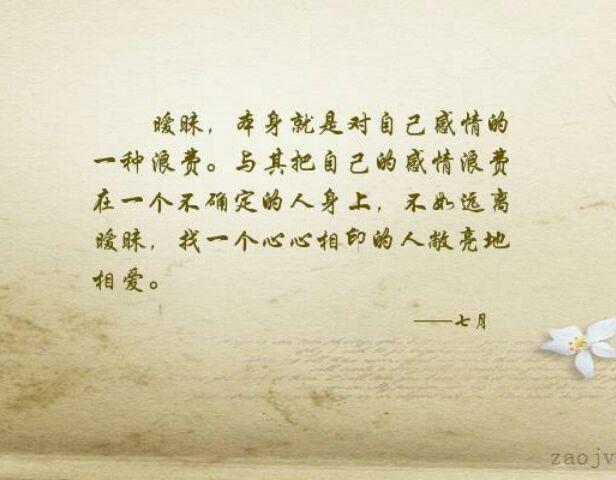 暧昧，本身就是对自己感情的
一种浪费。与其把自己的感情浪费
在一个不确定的人身上，不如远离
暧昧，找一个心心相印的人敞亮地
相爱。
——七月
zaojv